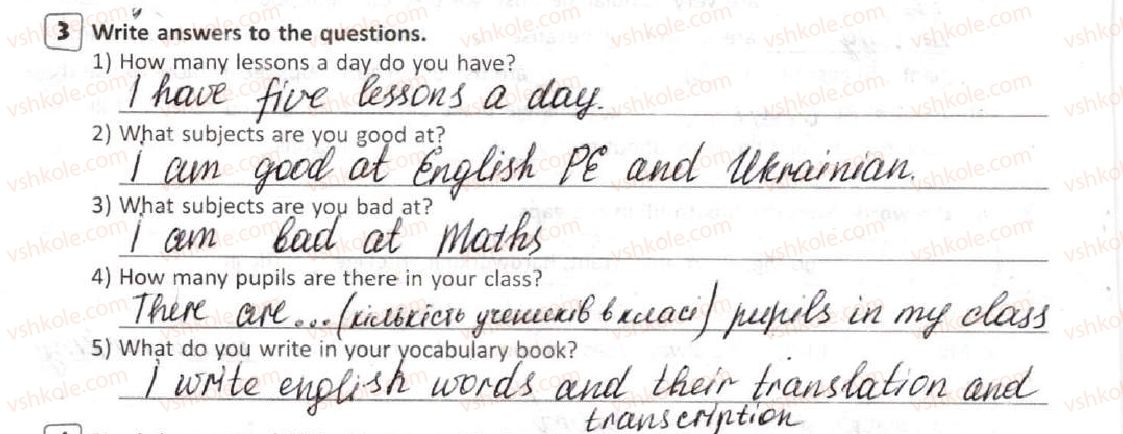 3 Write answers to the questions.
1) How many lessons a day do you have?
I have five lessons a day.
2) What subjects are you good at?
I am good at English PE and Ukrainian.
3) What subjects are you bad at?
I am bad at Maths
4) How many pupils are there in your class?
There are...(кількість учеників в класі) pupils in my class
5) What do you write in your vocabulary book?
I write english words and their translation and
transcription